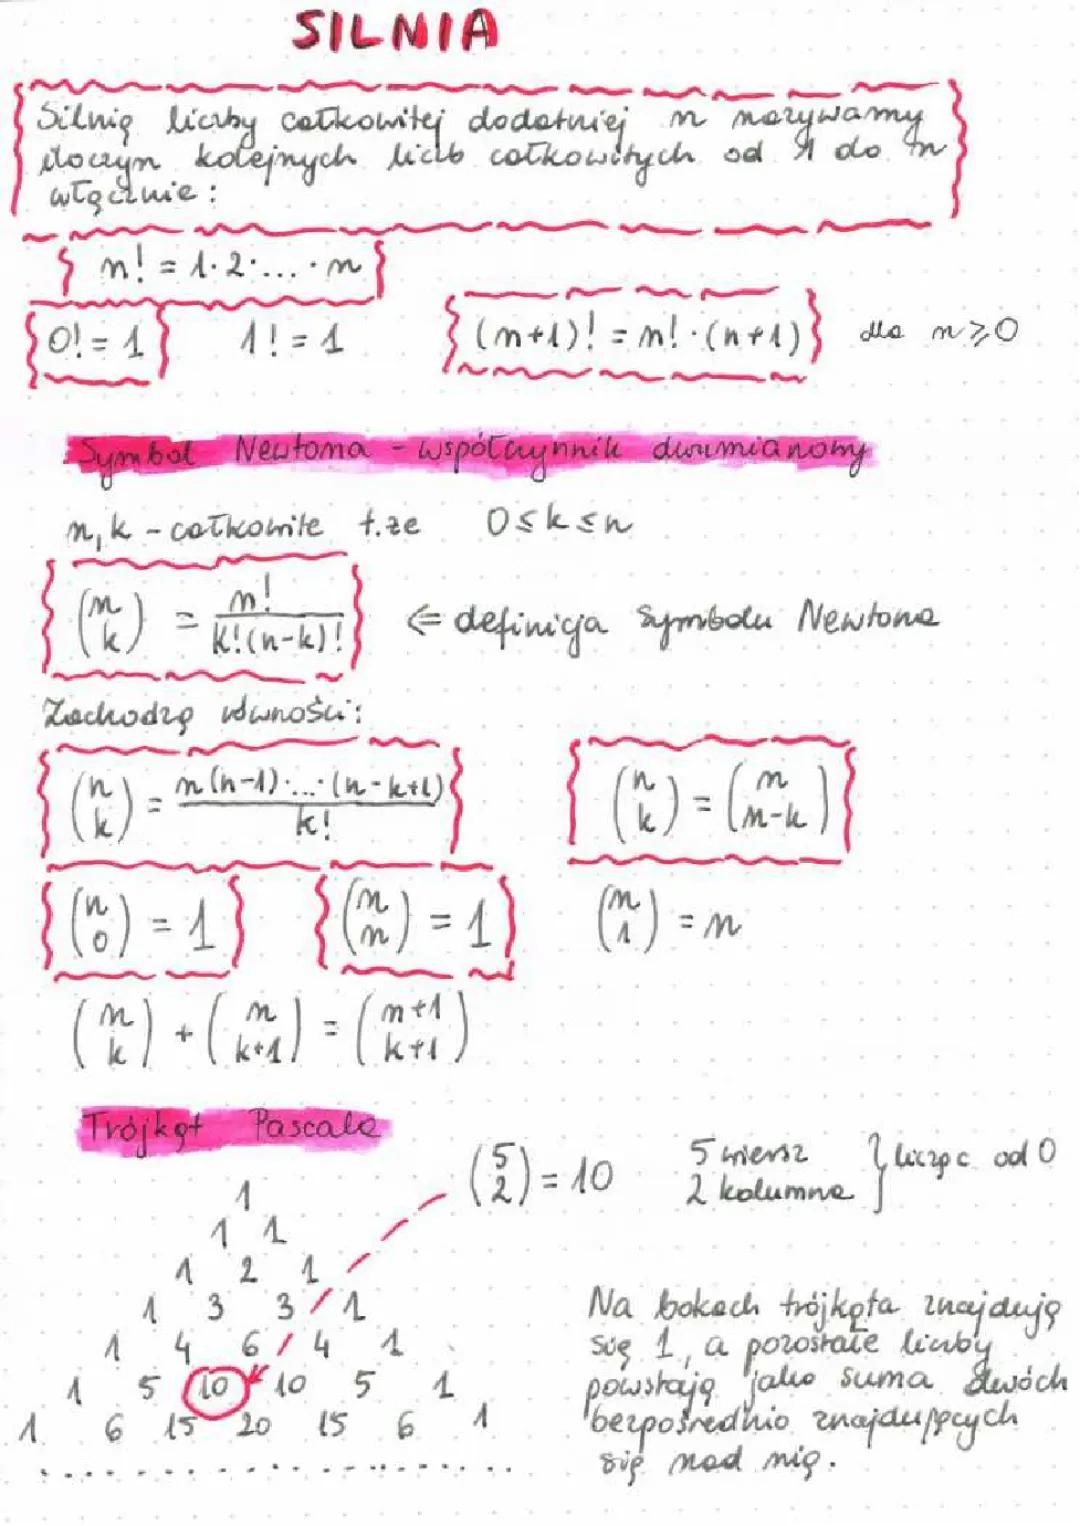 SILNIA
Silnią liczby całkowitej dodatniej n nazywamy
iloczyn kolejnych liczb całkowitych od 1 do n
włącznie:
n! = 1·2·...·n
0! = 1   1! = 1   (n+1)! = n!·(n+1)   dla n⩾0
Symbol Newtona - współczynnik dwumianowy
n, k - całkowite t.że 0≤k≤n
(n k) = n! / k!(n-k)!   ⇐ definicja symbolu Newtona
Zachodzą równości:
(n k) = n(n-1)·...·(n-k+1) / k!   (n k) = (n n-k)
(n 0) = 1   (n n) = 1   (n 1) = n
(n k) + (n k+1) = (n+1 k+1)
Trójkąt Pascala
(5 2) = 10   5 wiersz
2 kolumna } licząc od 0
1
1 1
1 2 1
1 3 3 1
1 4 6 4 1
1 5 10 10 5 1
1 6 15 20 15 6 1
Na bokach trójkąta znajdują
się 1, a pozostałe liczby
powstają jako suma dwóch
bezpośrednio znajdujących
się nad nią.